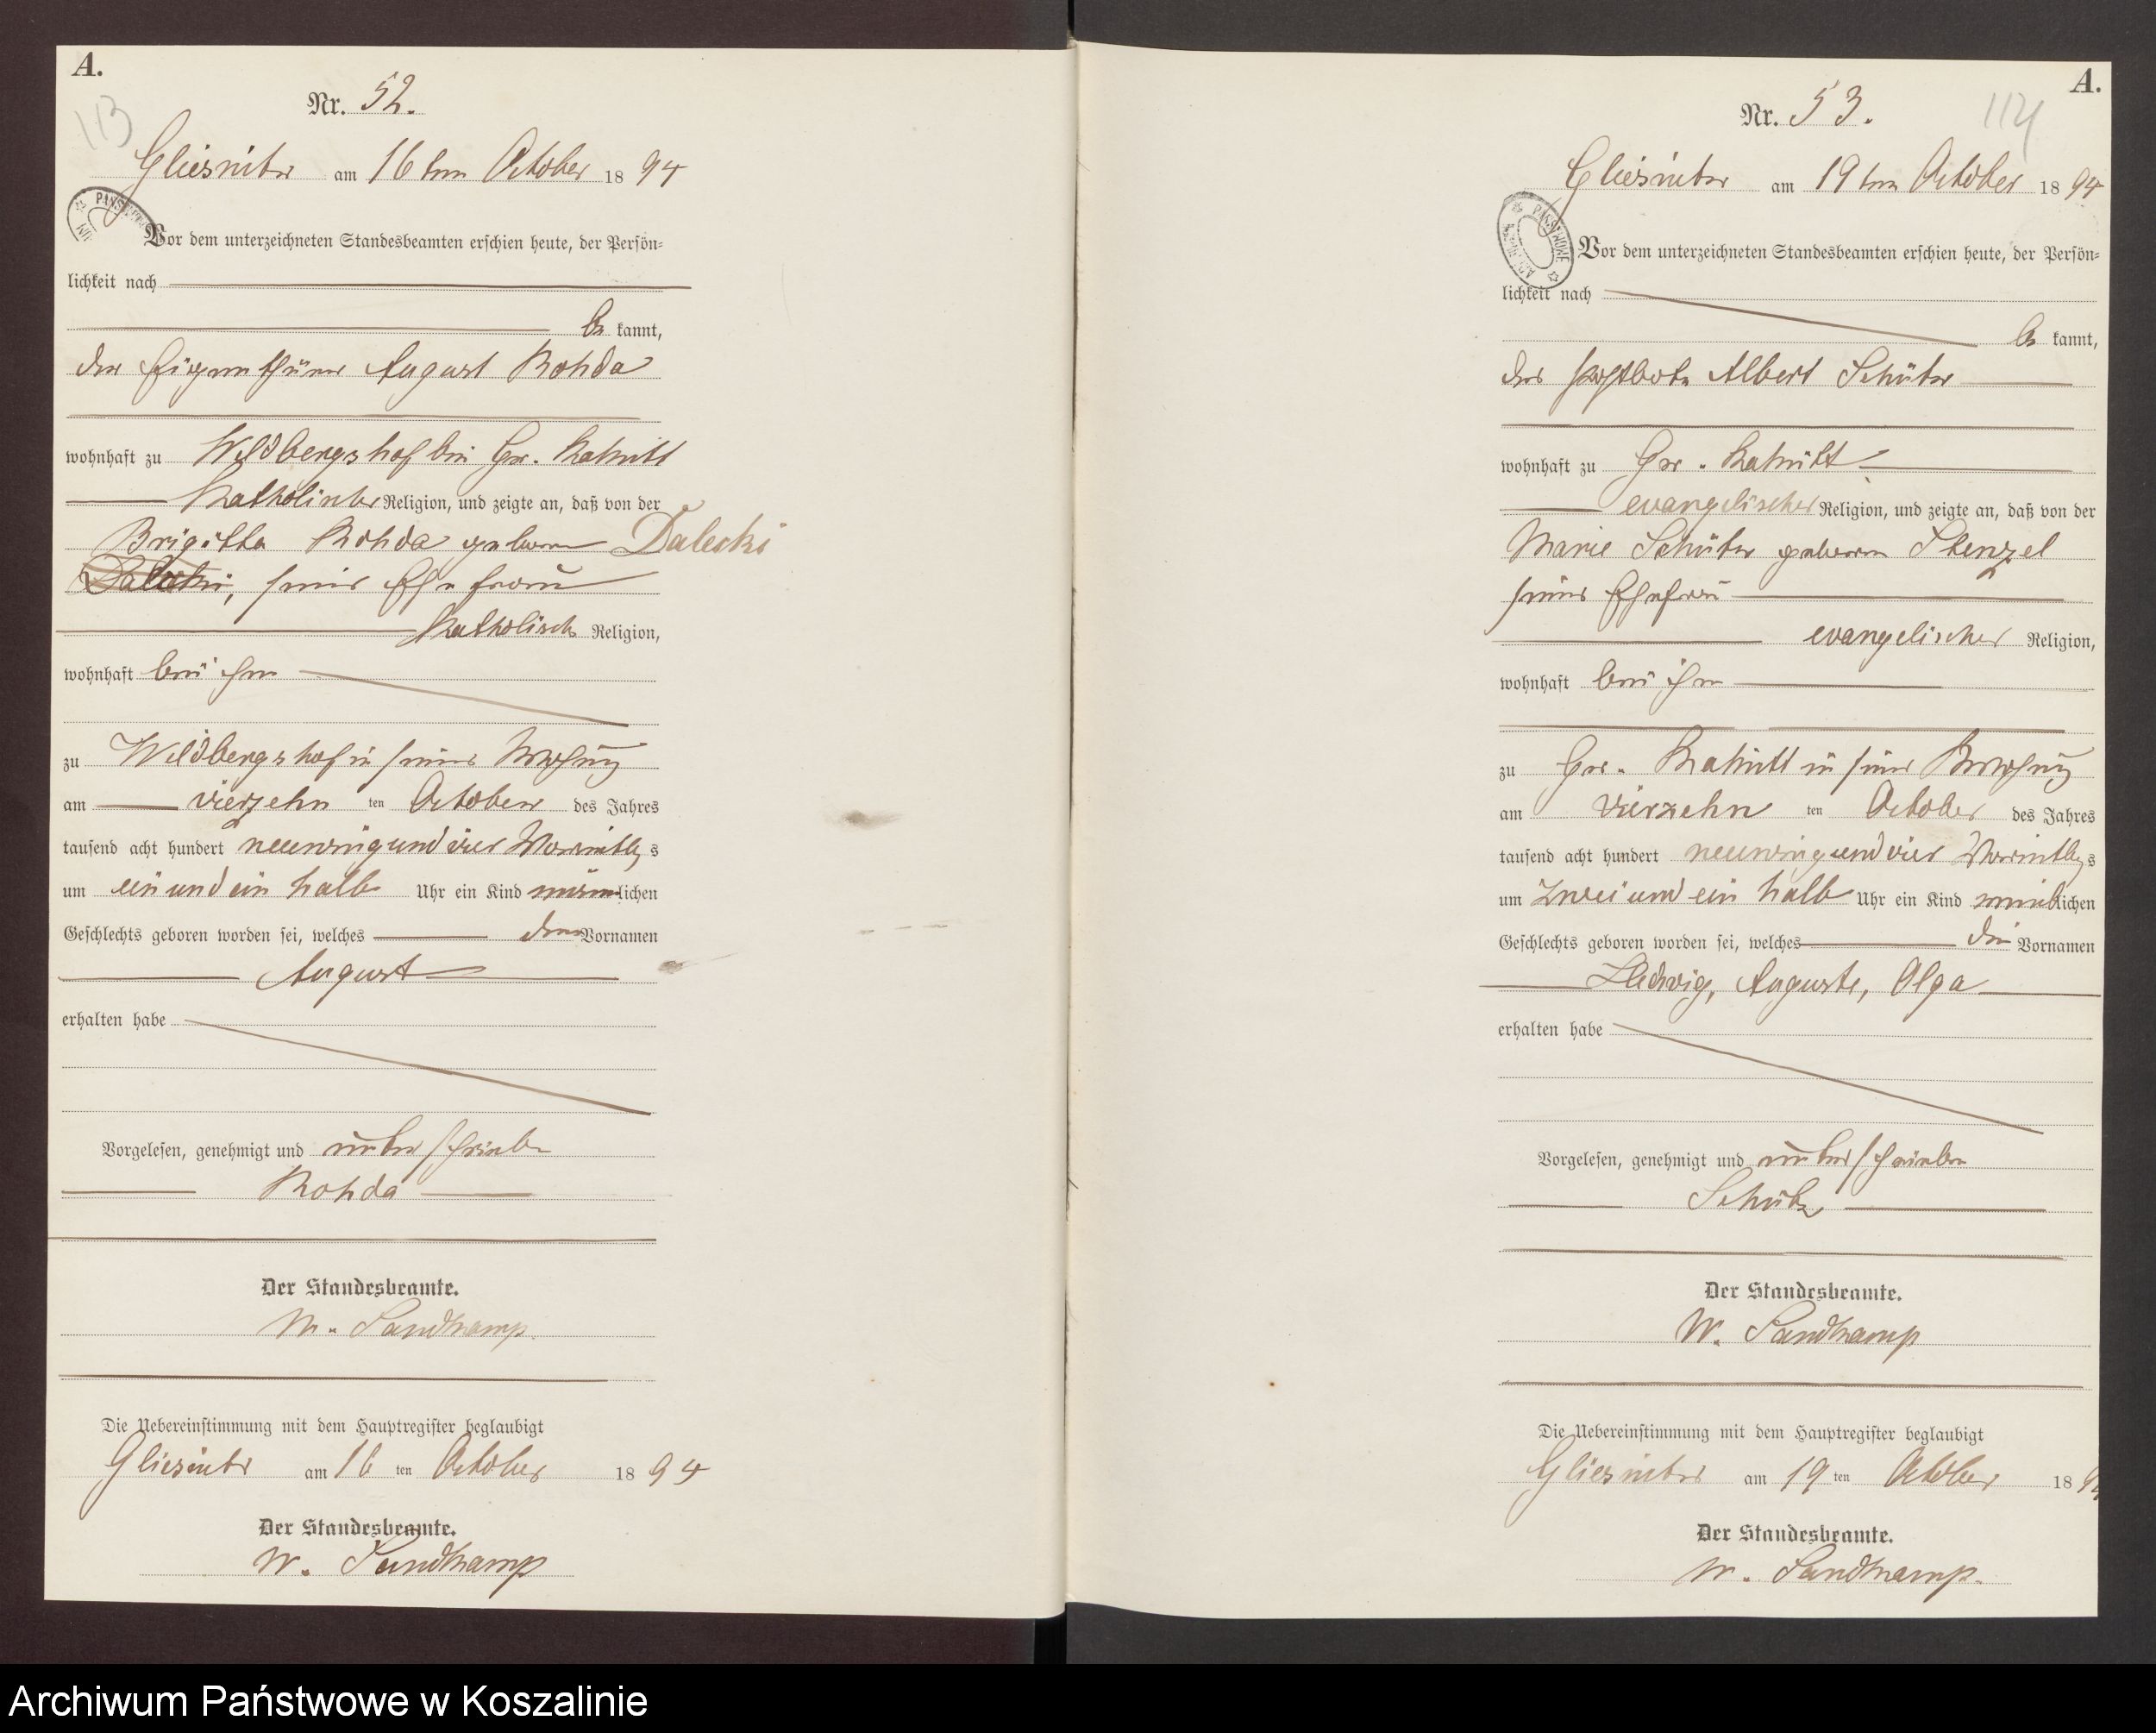 A.
113
Nr. 52.
Gliesnitz am 16ten October 1894
Vor dem unterzeichneten Standesbeamten erschien heute, der Persön-
lichkeit nach
be kannt,
der Eigenthümer August Rohda
wohnhaft zu Wildbergshof bei Gr. Katnitt
Katholischer Religion, und zeigte an, daß von der
Brigitta Rohda geborene Dalecki
seiner Ehefrau
Katholisch Religion,
wohnhaft bei ihm
zu Wildbergshof in seiner Wohnung
am vierzehn ten October des Jahres
tausend acht hundert neunzig und vier Vormittags
um ein und ein halb Uhr ein Kind männlichen
Geschlechts geboren worden sei, welches den Vornamen
August
erhalten habe
Vorgelesen, genehmigt und unterschrieben
Rohda
Der Standesbeamte.
W. Sandkamp
Die Uebereinstimmung mit dem Hauptregister beglaubigt
Gliesnitz am 16 ten October 1894
Der Standesbeamte.
W. Sandkamp
A.
114
Nr. 53.
Gliesnitz am 19ten October 1894
Vor dem unterzeichneten Standesbeamten erschien heute, der Persön-
lichkeit nach
be kannt,
der Postbote Albert Schütz
wohnhaft zu Gr. Katnitt
evangelischer Religion, und zeigte an, daß von der
Marie Schütz geborene Stenzel
seiner Ehefrau
evangelischer Religion,
wohnhaft bei ihm
zu Gr. Katnitt in seiner Wohnung
am vierzehn ten October des Jahres
tausend acht hundert neunzig und vier Vormittags
um zwei und ein halb Uhr ein Kind weiblichen
Geschlechts geboren worden sei, welches die Vornamen
Hedwig, Auguste, Olga
erhalten habe
Vorgelesen, genehmigt und unterschrieben
Schütz
Der Standesbeamte.
W. Sandkamp
Die Uebereinstimmung mit dem Hauptregister beglaubigt
Gliesnitz am 19 ten October 189
Der Standesbeamte.
W. Sandkamp.
Archiwum Państwowe w Koszalinie